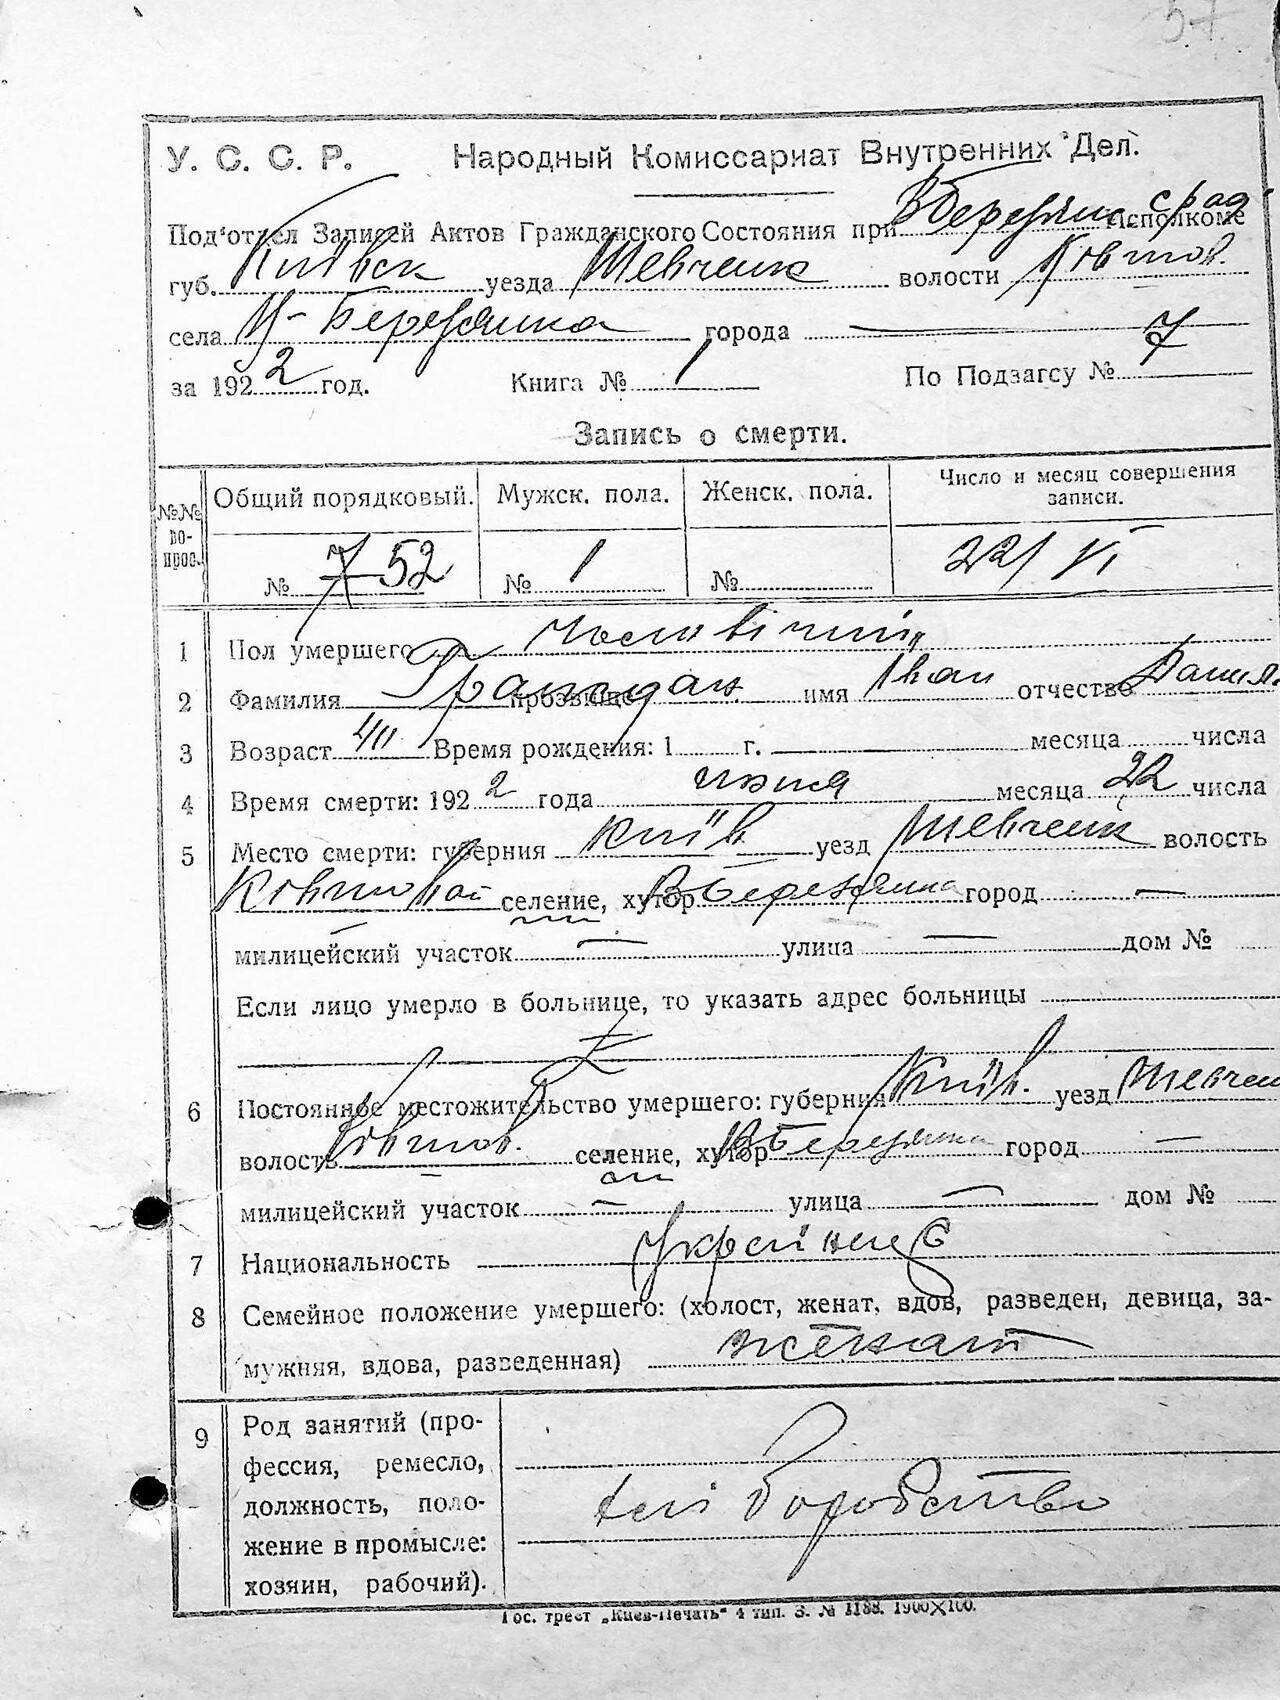 57
У. С. С. Р. Народный Комиссариат Внутренних Дел.
Под'отдел Записей Актов Гражданского Состояния при В Березян. срад Исполкоме
губ. Київск уезда Шевченк волости Ковшов.
села В-Березянка города —
за 1922 год. Книга № 1 По Подзагсу № 7
Запись о смерти.
№№ вопрос. Общий порядковый. Мужск. пола. Женск. пола. Число и месяц совершения записи.
№ 7 52 № 1 № 22/VI
1 Пол умершего
2 Фамилия прозвище имя Іван отчество Данил.
3 Возраст 40 Время рождения: 1 г. месяца числа
4 Время смерти: 1922 года июня месяца 22 числа
5 Место смерти: губерния Київ уезд Шевченк волость
Ковшовой селение, хутор В Березянка город —
милицейский участок — улица — дом №
Если лицо умерло в больнице, то указать адрес больницы
6 Постоянное местожительство умершего: губерния Київ. уезд Шевчен
волость Ковшов. селение, хутор В Березянка город —
милицейский участок — улица — дом №
7 Национальность Украінец
8 Семейное положение умершего: (холост, женат, вдов, разведен, девица, за-
мужняя, вдова, разведенная) женат
9 Род занятий (про-
фессия, ремесло,
должность, поло-
жение в промысле:
хозяин, рабочий).
хліборобство
Гос. трест „Киев-Печать“ 4 тип. З. № 1188. 1900×100.